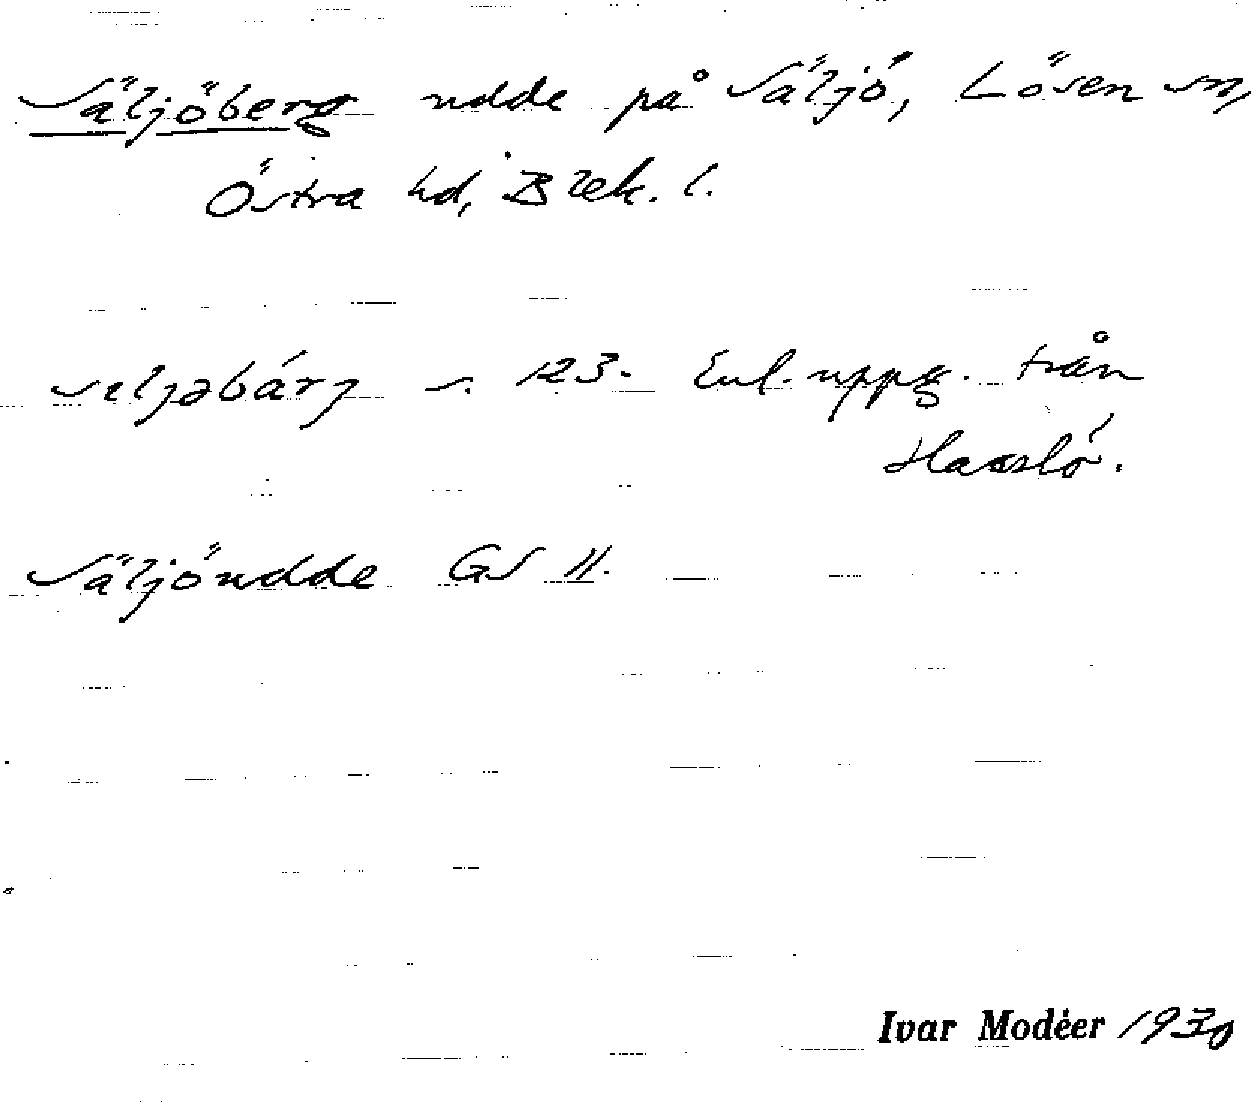 Säljöberg udde på Säljö, Lösen sn,
Östra hd, Blek. l.
seljəbárj s. 123. Enl. uppg. från
Hasslö.
Säljöudde GS II.
Ivar Modéer 1930